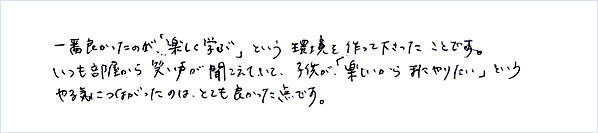 一番良かったのが、「楽しく学ぶ」という環境を作って下さったことです。
いつも部屋から笑い声が聞こえていて、子供が、「楽しいからまたやりたい」という
やる気につながったのは、とても良かった点です。